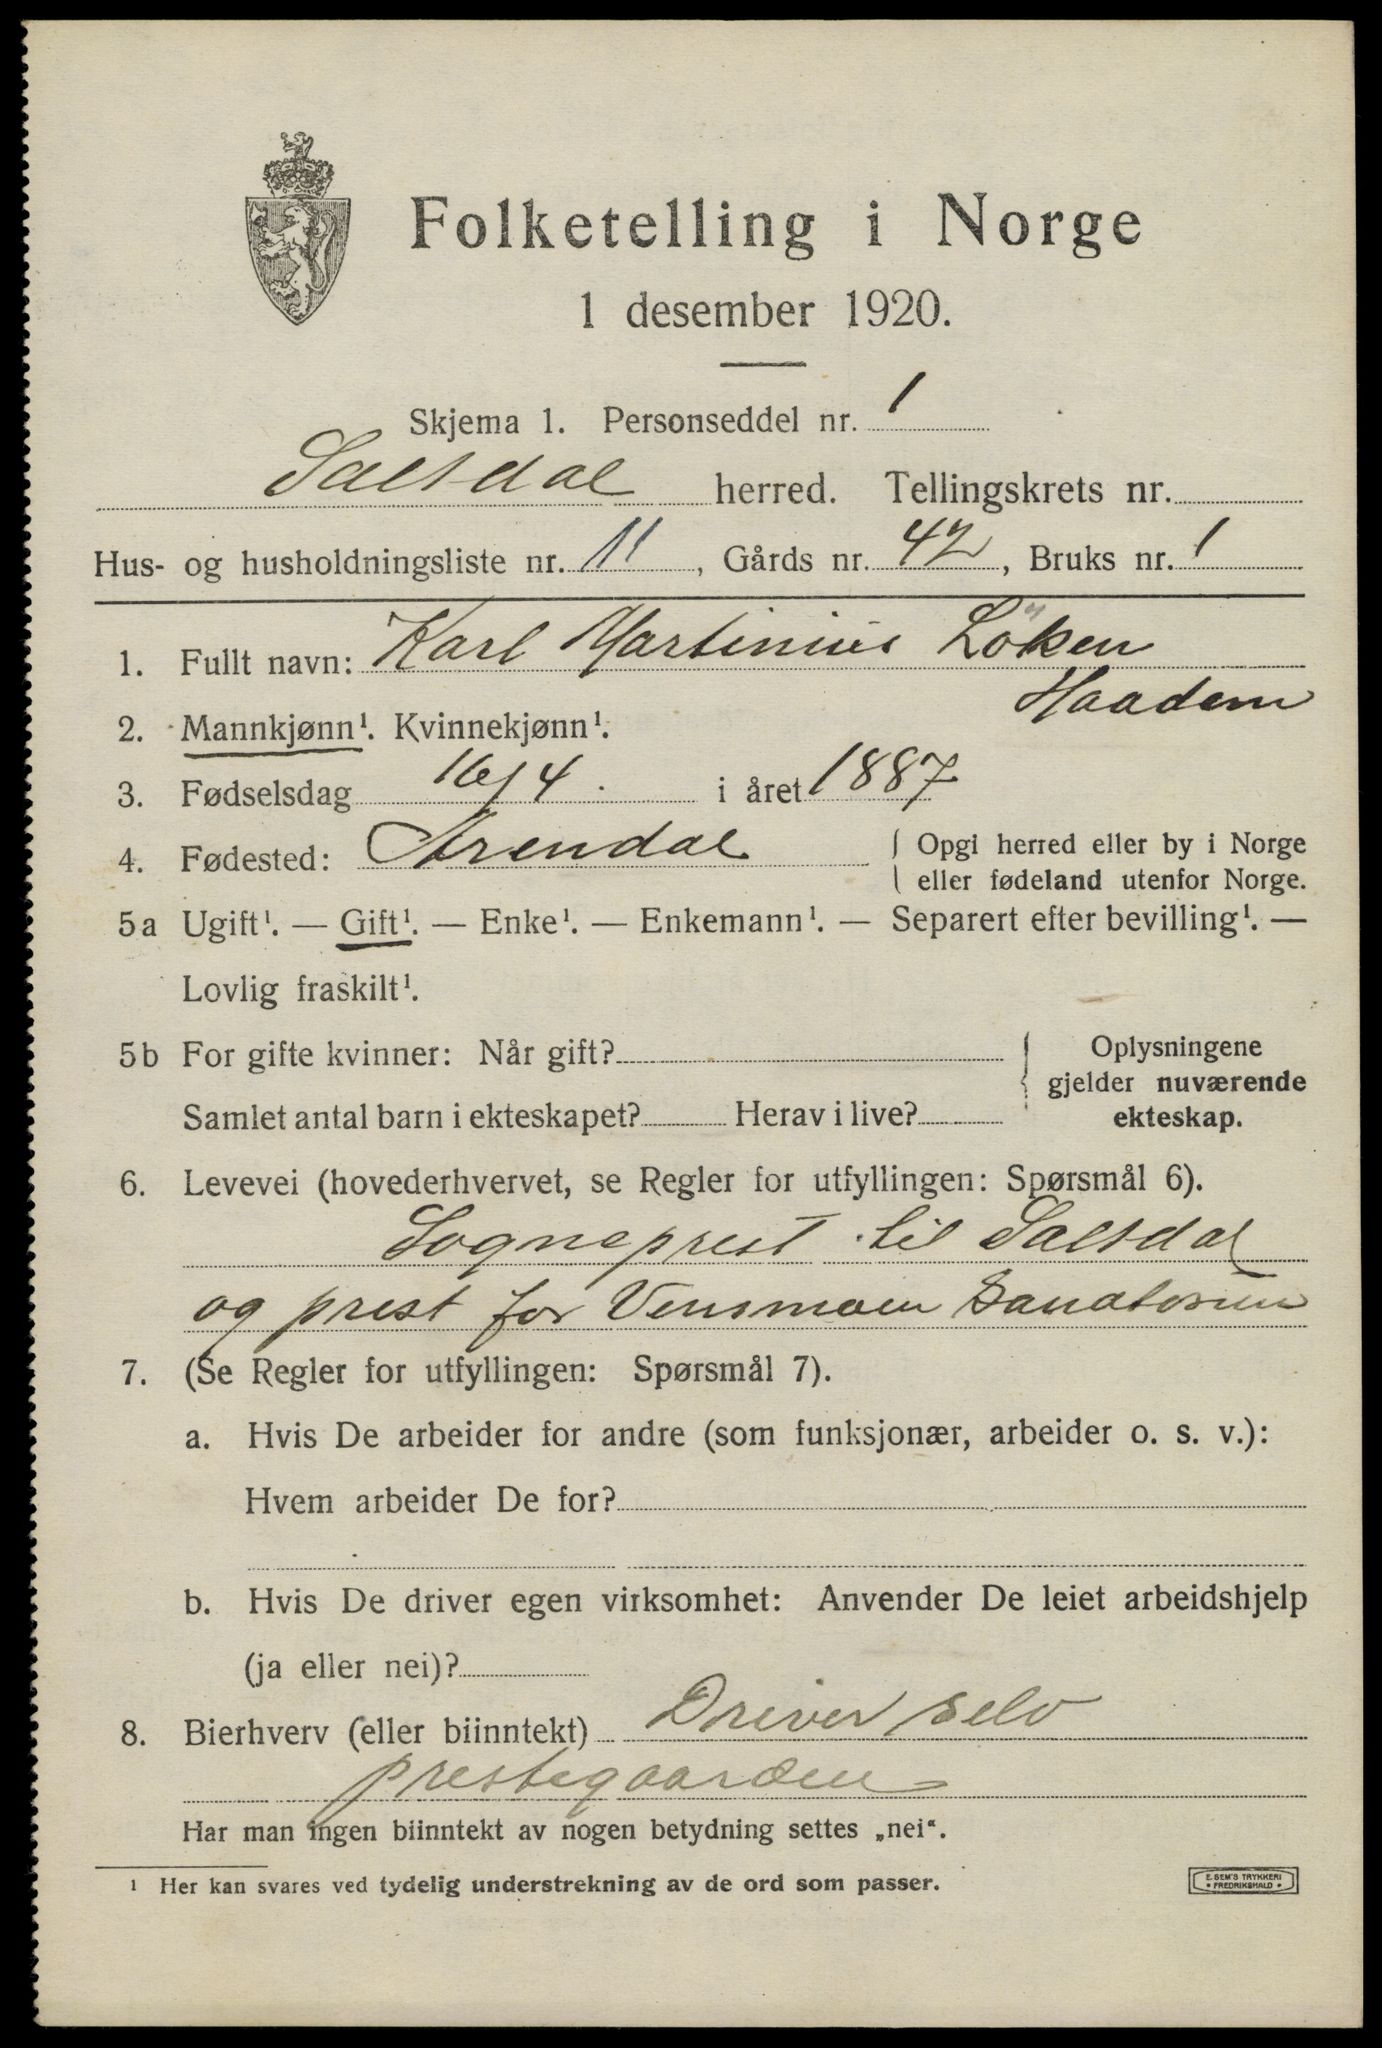 Folketelling i Norge
1 desember 1920.
Skjema 1. Personseddel nr. 1
Saltdal herred. Tellingskrets nr.
Hus- og husholdningsliste nr. 11, Gårds nr. 42, Bruks nr. 1
1. Fullt navn: Karl Martinius Löken
Haadem
2. Mannkjønn¹. Kvinnekjønn¹.
3. Fødselsdag 16/4. i året 1887
4. Fødested: Arendal { Opgi herred eller by i Norge
eller fødeland utenfor Norge.
5a Ugift¹. — Gift¹. — Enke¹. — Enkemann¹. — Separert efter bevilling¹. —
Lovlig fraskilt¹.
5b For gifte kvinner: Når gift? { Oplysningene
gjelder nuværende
Samlet antal barn i ekteskapet? Herav i live? ekteskap.
6. Levevei (hovederhvervet, se Regler for utfyllingen: Spørsmål 6).
Sogneprest til Saltdal
og prest for Vensmoen Sanatorium
7. (Se Regler for utfyllingen: Spørsmål 7).
a. Hvis De arbeider for andre (som funksjonær, arbeider o. s. v.):
Hvem arbeider De for?
b. Hvis De driver egen virksomhet: Anvender De leiet arbeidshjelp
(ja eller nei)?
8. Bierhverv (eller biinntekt) Driver selv
prestegaarden
Har man ingen biinntekt av nogen betydning settes „nei“.
¹ Her kan svares ved tydelig understrekning av de ord som passer.
E. SEM'S TRYKKERI
* FREDRIKSHALD *